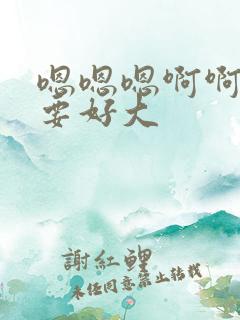 嗯嗯嗯啊啊
要好大
謝紅鲤
未任同意禁止转载